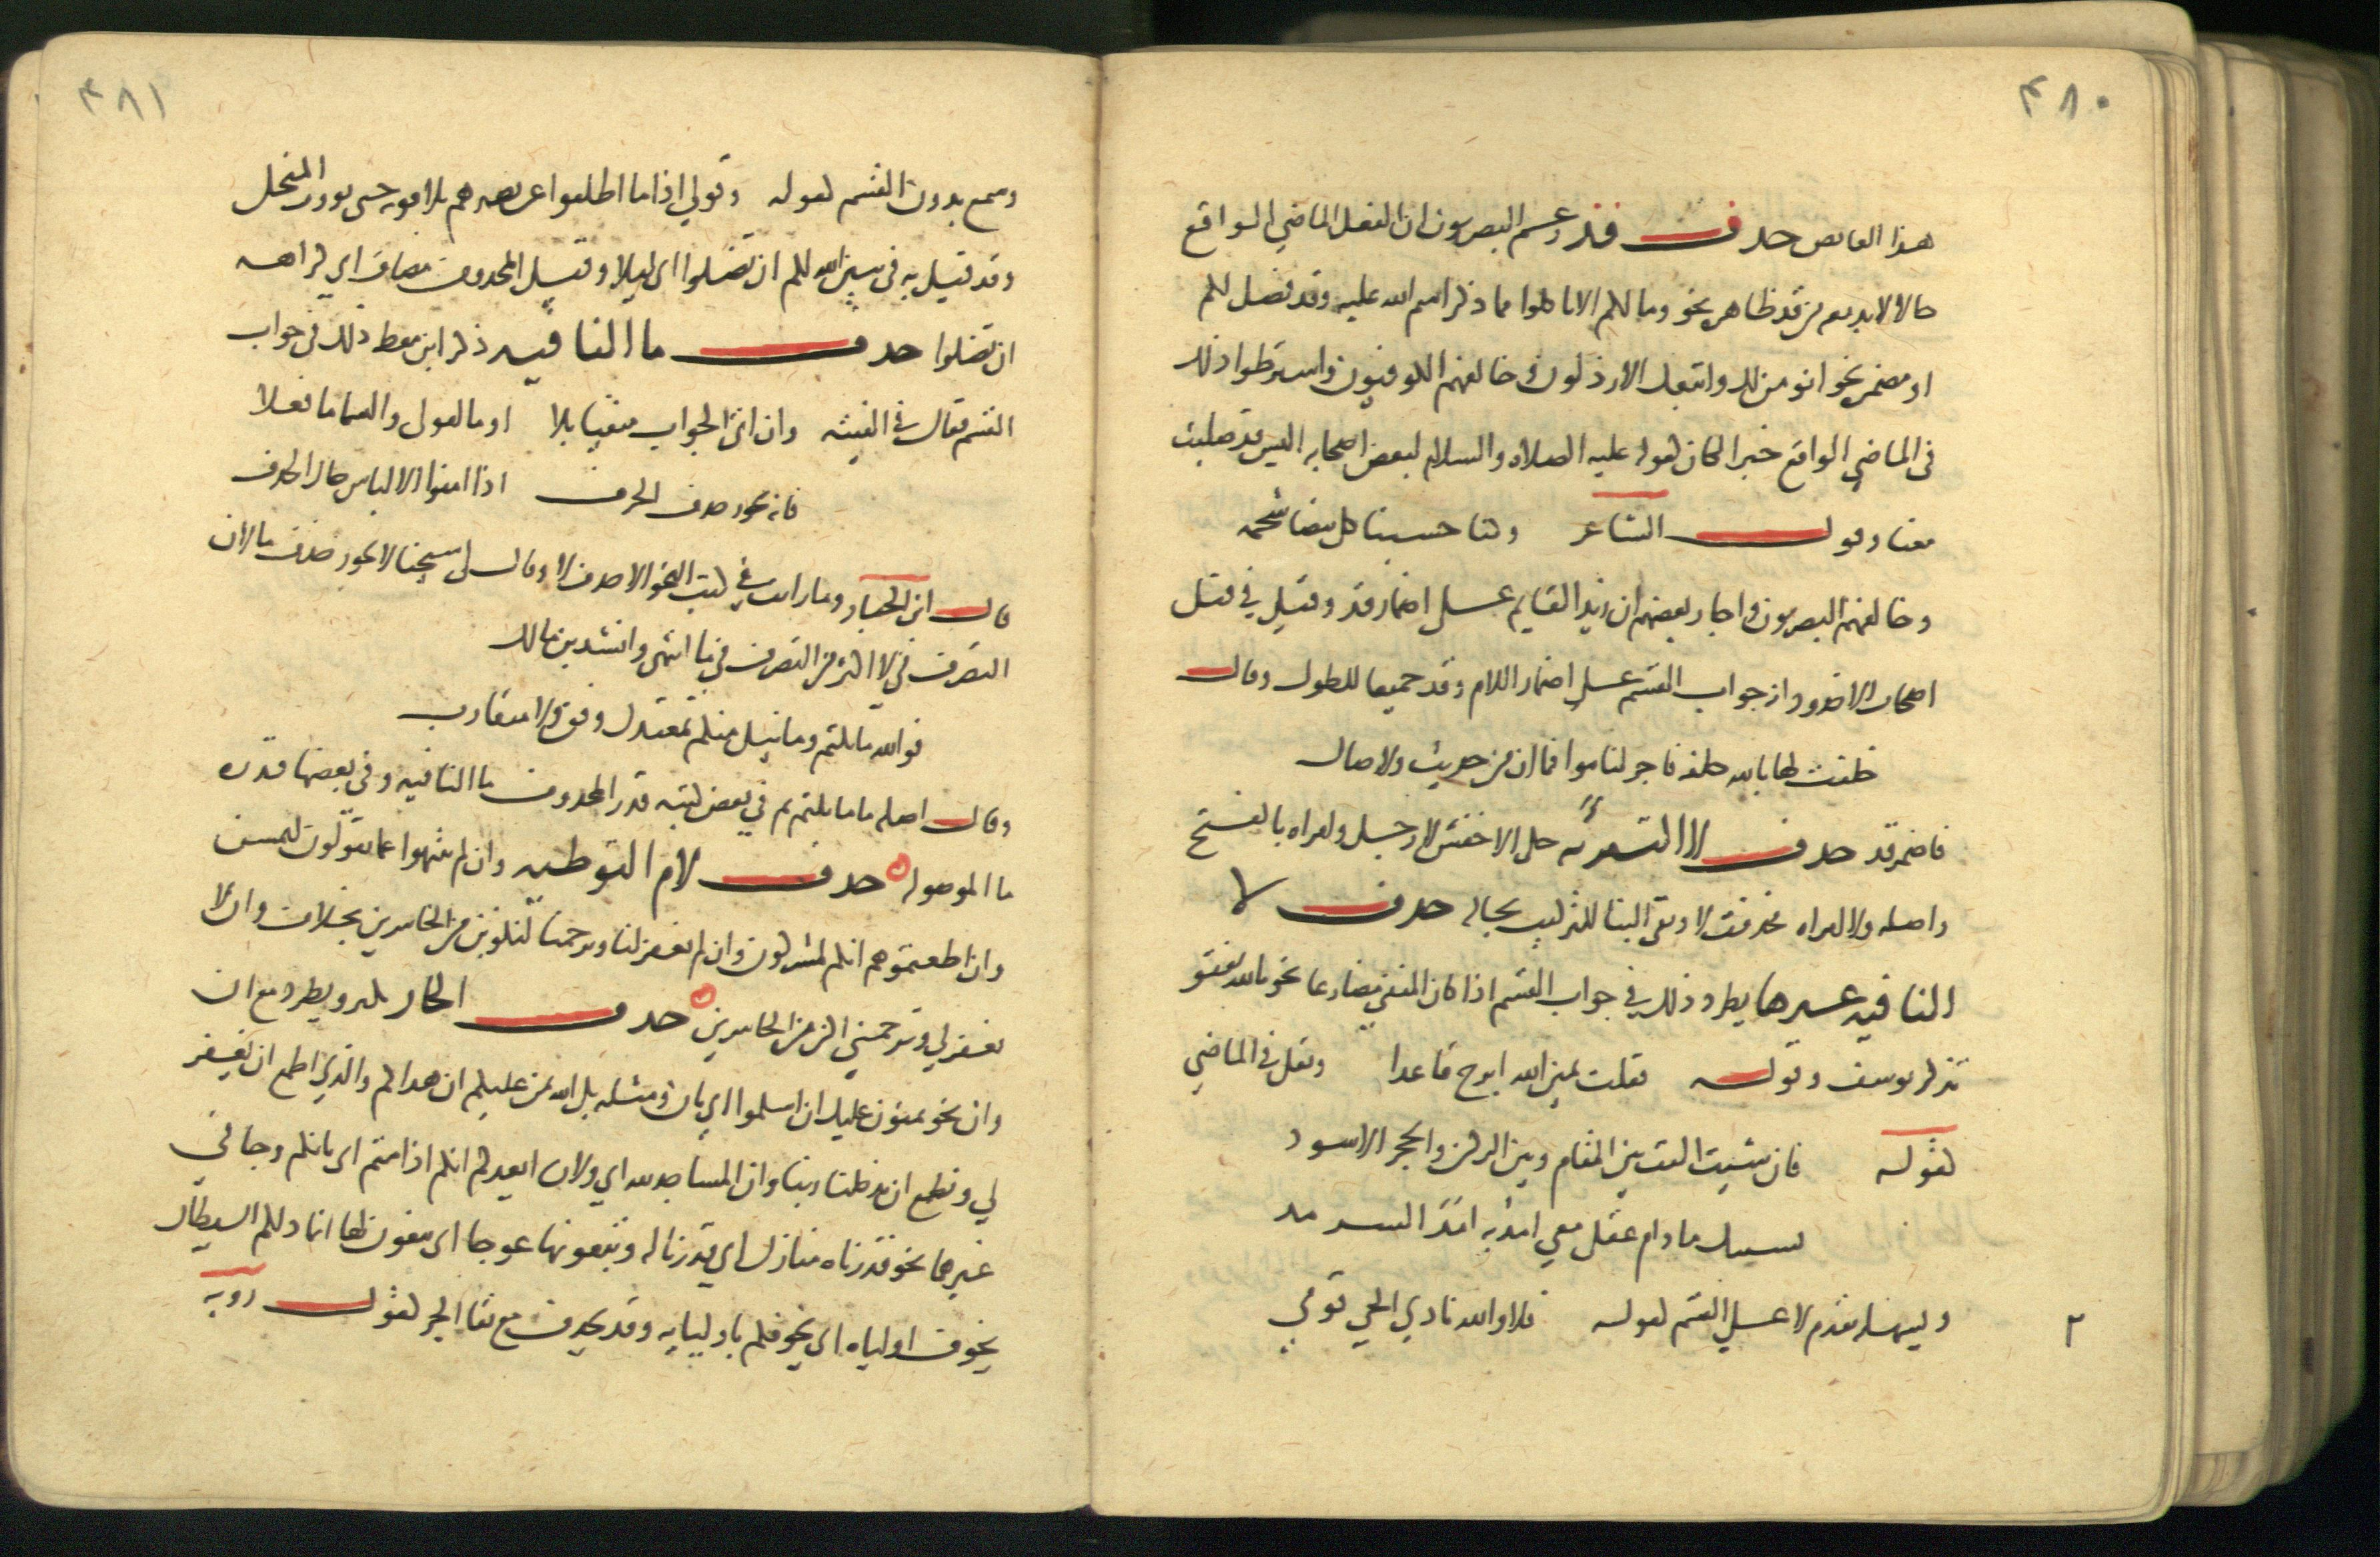 ٤٨٠
هذا الناقص حذف قد زعم البصريون ان الفعل الماضي الواقع
حالا لابد معه من قد ظاهره نحو وما لكم الا تاكلوا مما ذكر اسم الله عليه وقد فصل لكم
او مضمره نحو انومن لك واتبعك الارذلون وخالفهم الكوفيون واشترطوا ذلك
في الماضي الواقع خبرا لكان كقوله عليه الصلاه والسلام لبعض اصحابه اليس قد صليت
معنا وقول الشاعر وكنا حسبنا كل بيضا شحمه
وخالفهم البصريون واجاز بعضهم ان زيدا لقايم على اضمار قد وقيل في قتل
اصحاب الاخدود انه جواب القسم على اضمار اللام وقد جميعا للطول وقال
حلفت لها بالله حلفه فاجر لناموا فما ان من حديث ولا صال
فاضمر قد حذف لا التبرئه حكى الاخفش لا رجل وامراه بالفتح
واصله ولا امراه فحذفت لا وبقي البنا للتركيب بحاله حذف لا
النافيه غيرها يطرد ذلك في جواب القسم اذا كان المنفي مضارعا نحو تالله تفتو
تذكر يوسف وقوله فقلت يمين الله ابرح قاعدا ويقل في الماضي
كقوله فان شيت اليت بين المقام وبين الركن والحجر الاسود
نسيتك ما دام عقلي معي امد به امد السرمد
ويسهله تقدم لا على القسم كقوله فلا والله نادى الحي قومي
٢
٤٨١
وسمع بدون القسم كقوله وقولي اذا ما اطلقوا عن بعيرهم يلاقونه حتى يووب المنخل
وقد قيل به في يبين الله لكم ان تضلوا اي ليلا وقيل المحذوف مضاف اي كراهه
ان تضلوا حذف ما النافيه ذكر ابن معط ذلك في جواب
القسم فقال في الفيته وان اتى الجواب منفيا بلا او ما كقولي والسما ما فعلا
فانه يجوز حذف الحرف اذا امنوا الالباس حال الحذف
قال ابن الخباز وما رايت في كتب النحو الا حذف لا وقال لي شيخنا لا يجوز حذف ما لان
التصرف في لا اكثر من التصرف في ما انتهى وانشد بن مالك
فوالله ما نلتم وما نيل منكم بمعتدل وفق ولا متقارب
وقال اصله ما ما نلتم ثم في بعض كتبه قدر المحذوف ما النافيه وفي بعضها قدره
ما الموصوله حذف لام التوطيه وان لم ينتهوا عما يقولون ليمسن
وان اطعتموهم انكم لمشركون وان لم تغفر لنا وترحمنا لنكونن من الخاسرين بخلاف وان لا
تغفر لي وترحمني اكن من الخاسرين حذف الجار يكثر ويطرد مع ان
وان نحو يمنون عليك ان اسلموا اي بان ومثله بل الله يمن عليكم ان هداكم والذي اطمع ان يغفر
لي ونطمع ان يدخلنا ربنا وان المساجد لله اي ولان ايعدكم انكم اذا متم اي بانكم وجا في
غيرهما نحو قدرناه منازل اي قدرنا له ويبغونها عوجا اي يبغون لها انما ذلكم الشيطان
يخوف اولياه اي يخوفكم باوليايه وقد يحذف مع بقا الجر كقول روبه